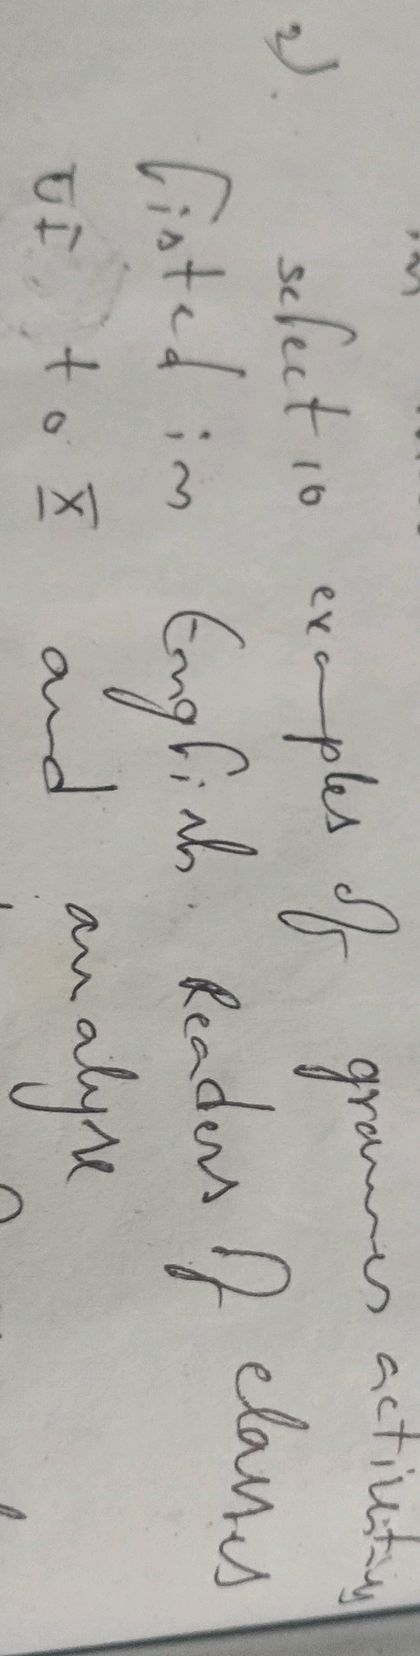 2) select 10 examples of grammar activities
listed in English Readers of classes
VI to X and analyse